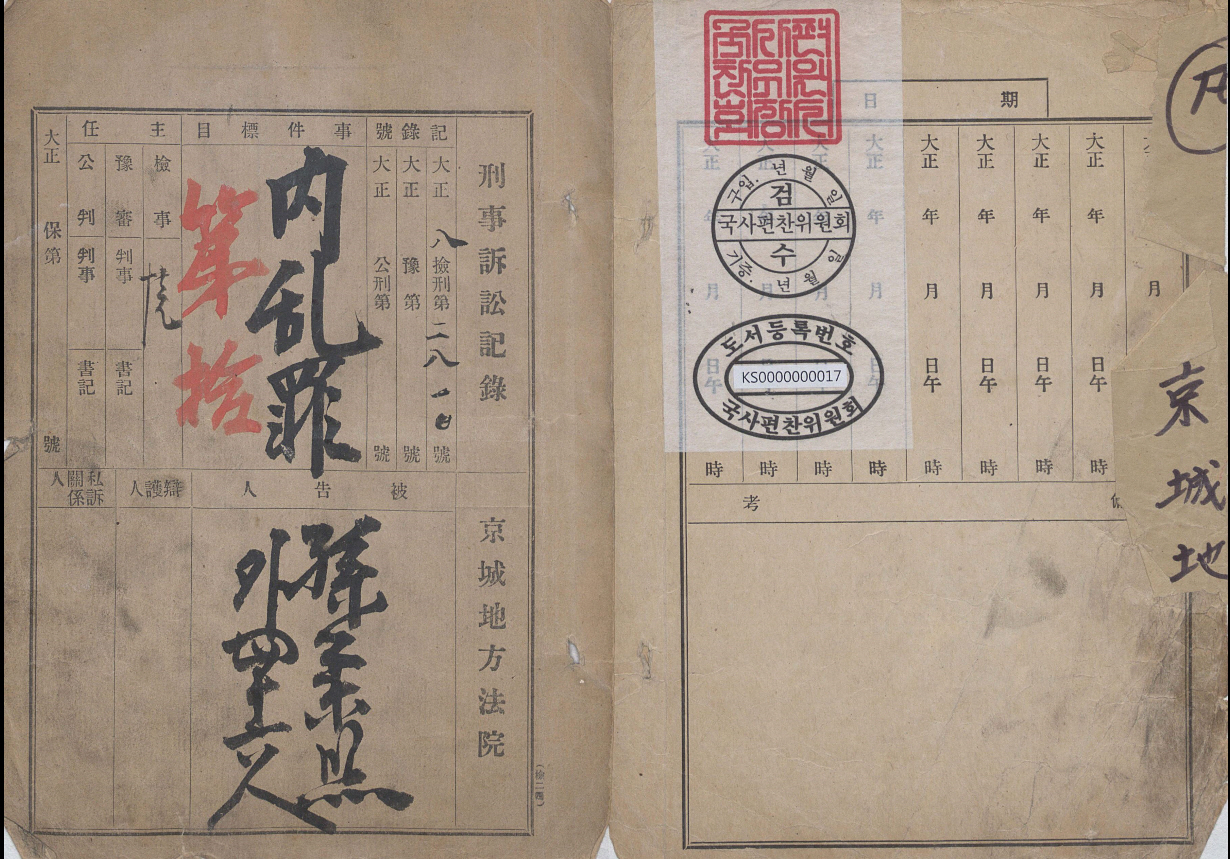 刑事訴訟記錄
京城地方法院
記錄號
大正 八 檢刑第 二八 號
大正 豫第 號
大正 公刑第 號
事件標目
内乱罪
第拾
主任
檢事
豫審判事 書記
公判判事 書記
大正 保第 號
被告人
孫秉熙
外四十六人
辯護人
私訴關係人
京城地
期日
月
大正 年 月 日午 時
大正 年 月 日午 時
大正 年 月 日午 時
大正 年 月 日午 時
大正 年 月 日午 時
大正 年 月 時
大正 年 月 時
大正 年 月 日午 時
考
구입. 년 월 일
검
국사편찬위원회
수
기증. 년 월 일
도서등록번호
KS0000000017
국사편찬위원회